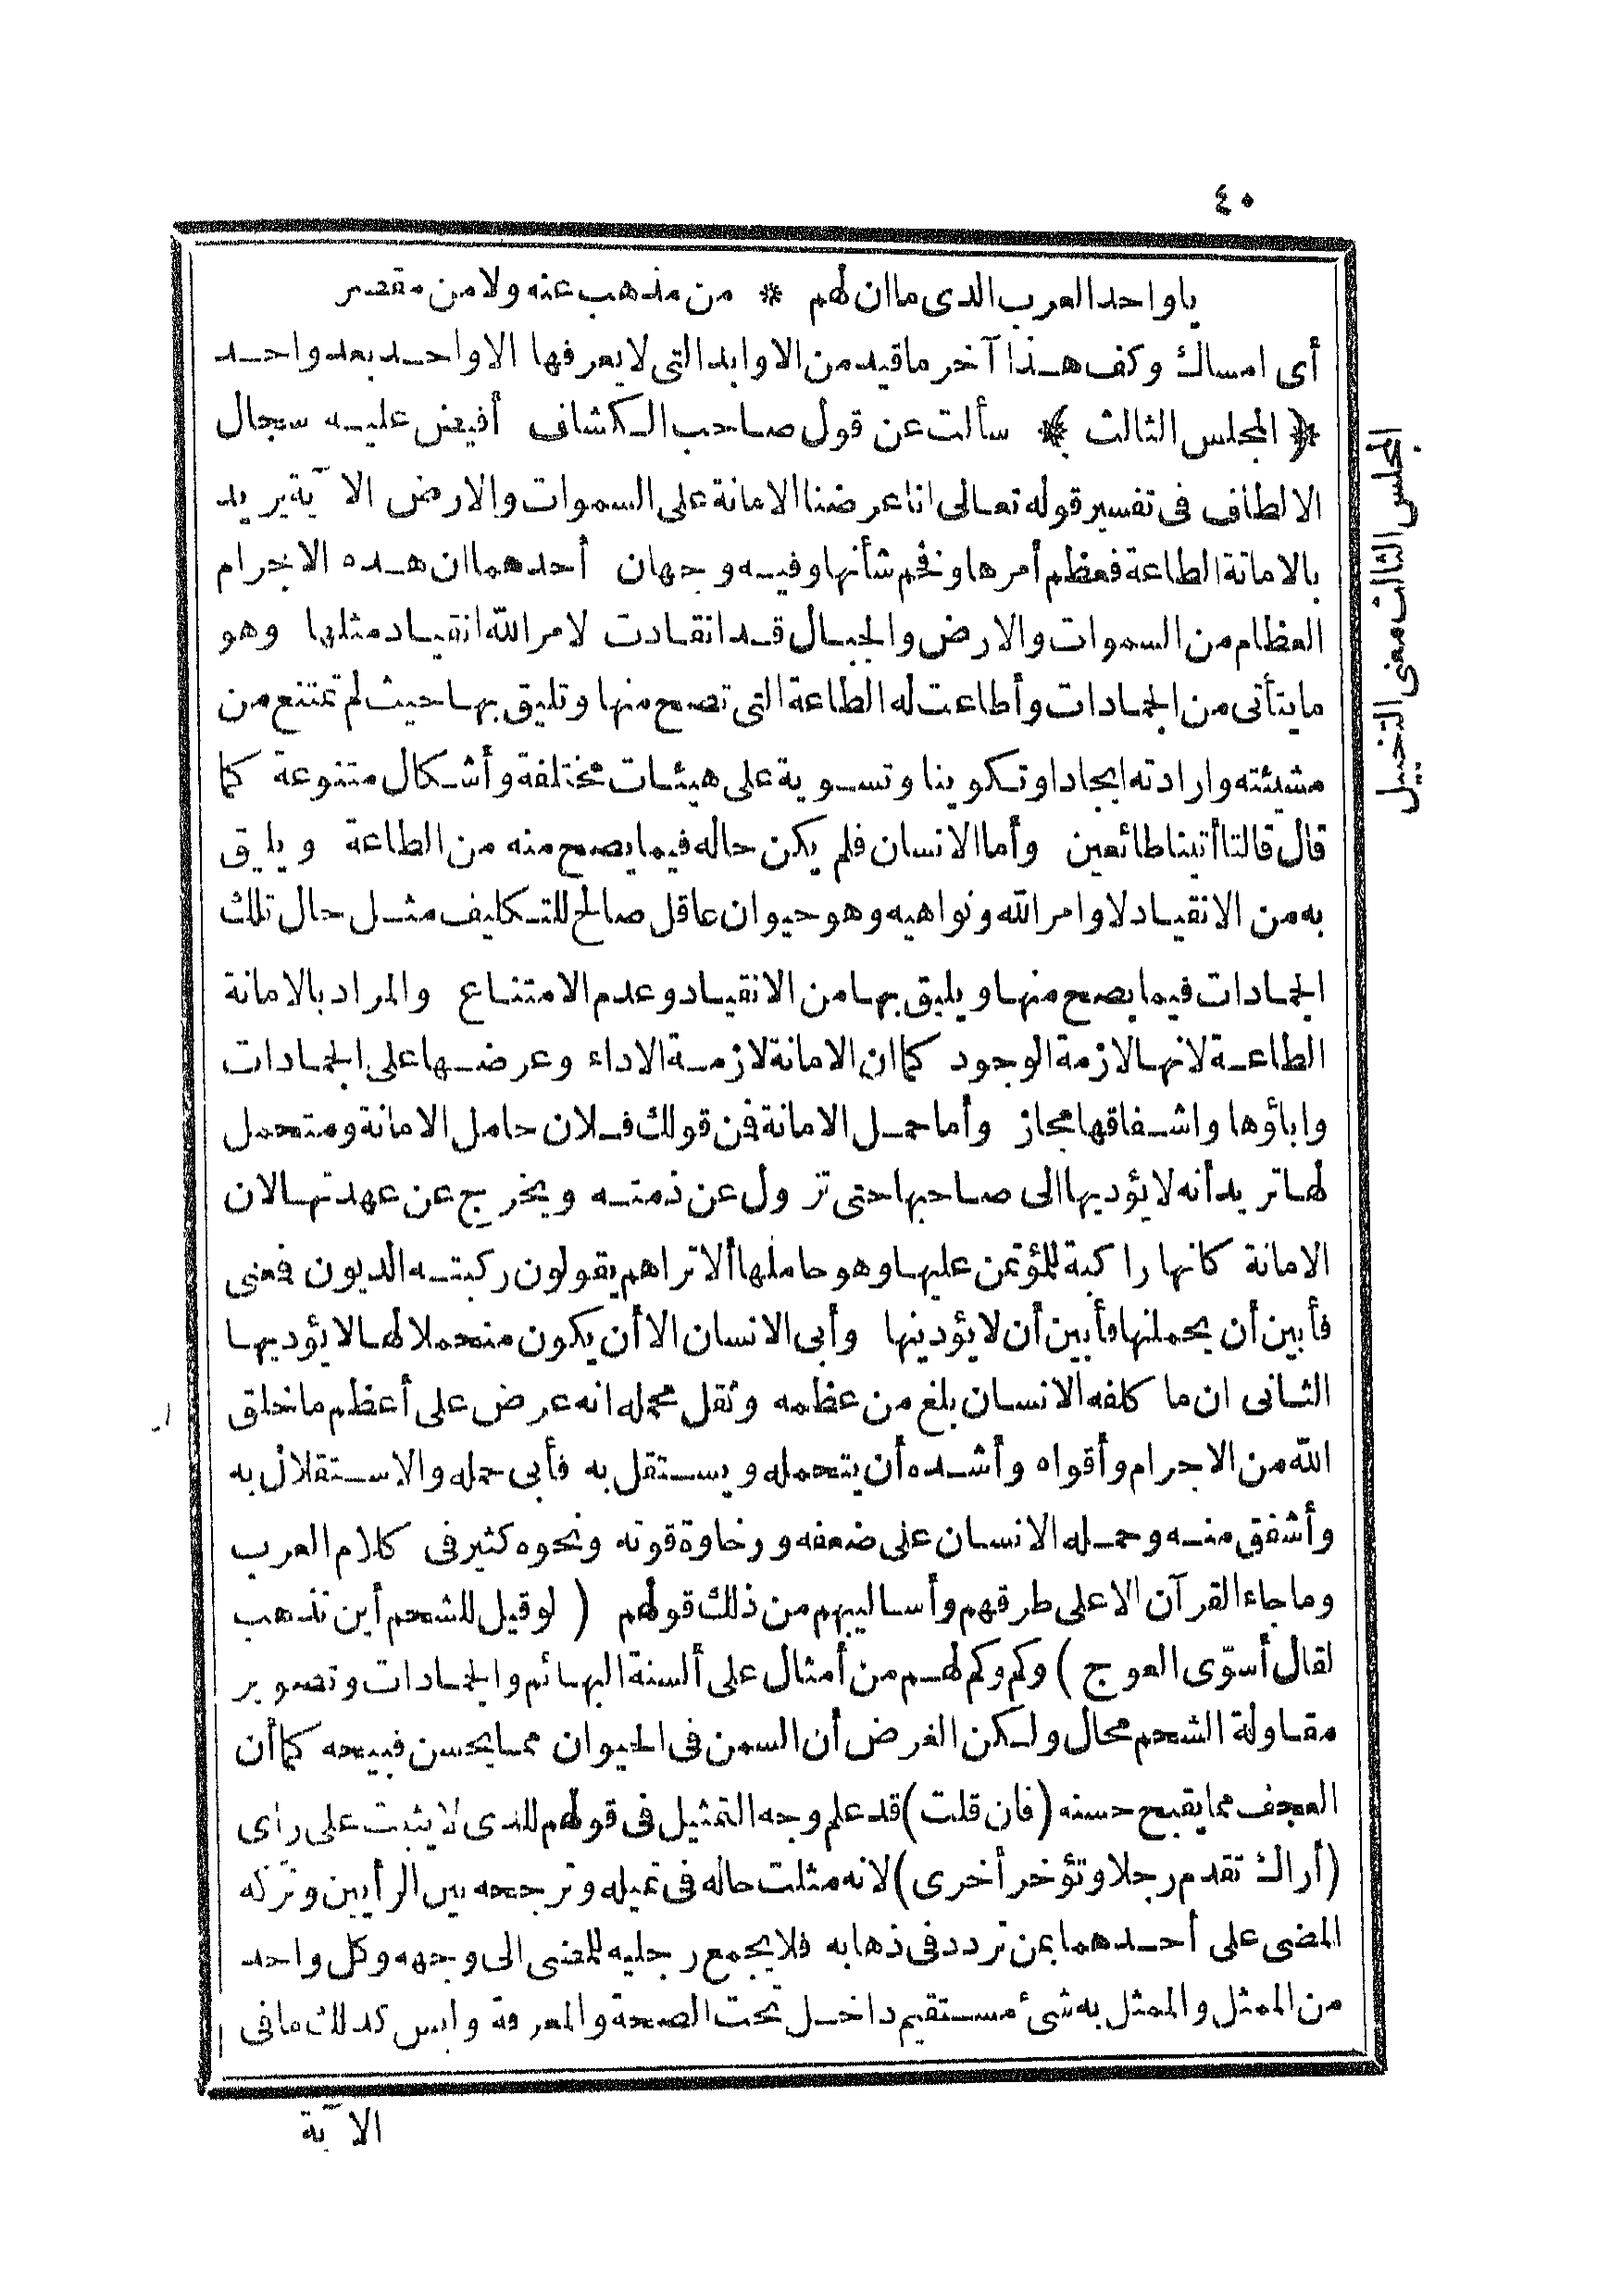 ٤٠
ياواحد العرب الذى ما ان لهم * من مذهب عنه ولا من مقصر
أى امساك وكف هذا آخر ما قيد من الاوابد التى لا يعرفها الا واحد بعد واحد
﴿ المجلس الثالث ﴾ سألت عن قول صاحب الكشاف أفيض عليه سجال
الالطاف فى تفسير قوله تعالى انا عرضنا الامانة على السموات والارض الآية يريد
بالامانة الطاعة فعظم أمرها ونخم شأنها وفيه وجهان أحدهما ان هذه الاجرام
العظام من السموات والارض والجبال قد انقادت لامر الله انقياد مثلها وهو
ما يتأتى من الجمادات وأطاعت له الطاعة التى تصح منها وتليق بها حيث لم تمتنع من
مشيئته وارادته ايجادا وتكوينا وتسوية على هيئات مختلفة وأشكال متنوعة كما
قال قالتا أتينا طائعين وأما الانسان فلم يكن حاله فيما يصح منه من الطاعة ويليق
به من الانقياد لاوامر الله ونواهيه وهو حيوان عاقل صالح للتكليف مثل حال تلك
الجمادات فيما يصح منها ويليق بها من الانقياد وعدم الامتناع والمراد بالامانة
الطاعة لانها لازمة الوجود كما ان الامانة لازمة الاداء وعرضها على الجمادات
واباؤها واشفاقها مجاز وأما حمل الامانة فمن قولك فلان حامل الامانة ومتحمل
لها تريد أنه لا يؤديها الى صاحبها حتى تزول عن ذمته ويخرج عن عهدتها لان
الامانة كانها راكبة للمؤتمن عليها وهو حاملها ألا تراهم يقولون ركبته الديون فمعنى
فأبين أن يحملنها فأبين أن لا يؤدينها وأبى الانسان الا أن يكون متحملا لها لا يؤديها
الثانى ان ما كلفه الانسان بلغ من عظمه وثقل محمله انه عرض على أعظم ما خلق
الله من الاجرام وأقواه وأشده أن يتحمله ويستقل به فأبى حمله والاستقلال به
وأشفق منه وحمله الانسان على ضعفه ورخاوة قوته ونحوه كثير فى كلام العرب
وما جاء القرآن الا على طرقهم وأساليبهم من ذلك قولهم ( لو قيل للشحم أين تذهب
لقال أسوّى العوج ) وكم وكم لهم من أمثال على ألسنة البهائم والجمادات وتصوير
مقاولة الشحم محال ولكن الغرض أن السمن فى الحيوان مما يحسن قبيحه كما أن
العجف مما يقبح حسنه (فان قلت) قد علم وجه التمثيل فى قولهم للذى لا يثبت على رأى
(أراك تقدم رجلا وتؤخر أخرى) لانه مثلت حاله فى تميله وترجحه بين الرأيين وتركه
المضى على أحدهما بمن تردد فى ذهابه فلا يجمع رجليه للمضى الى وجهه وكل واحد
من الممثل والممثل به شئ مستقيم داخل تحت الصحة والمعرفة وليس كذلك ما فى
الآية
المجلس الثالث معنى التخييل